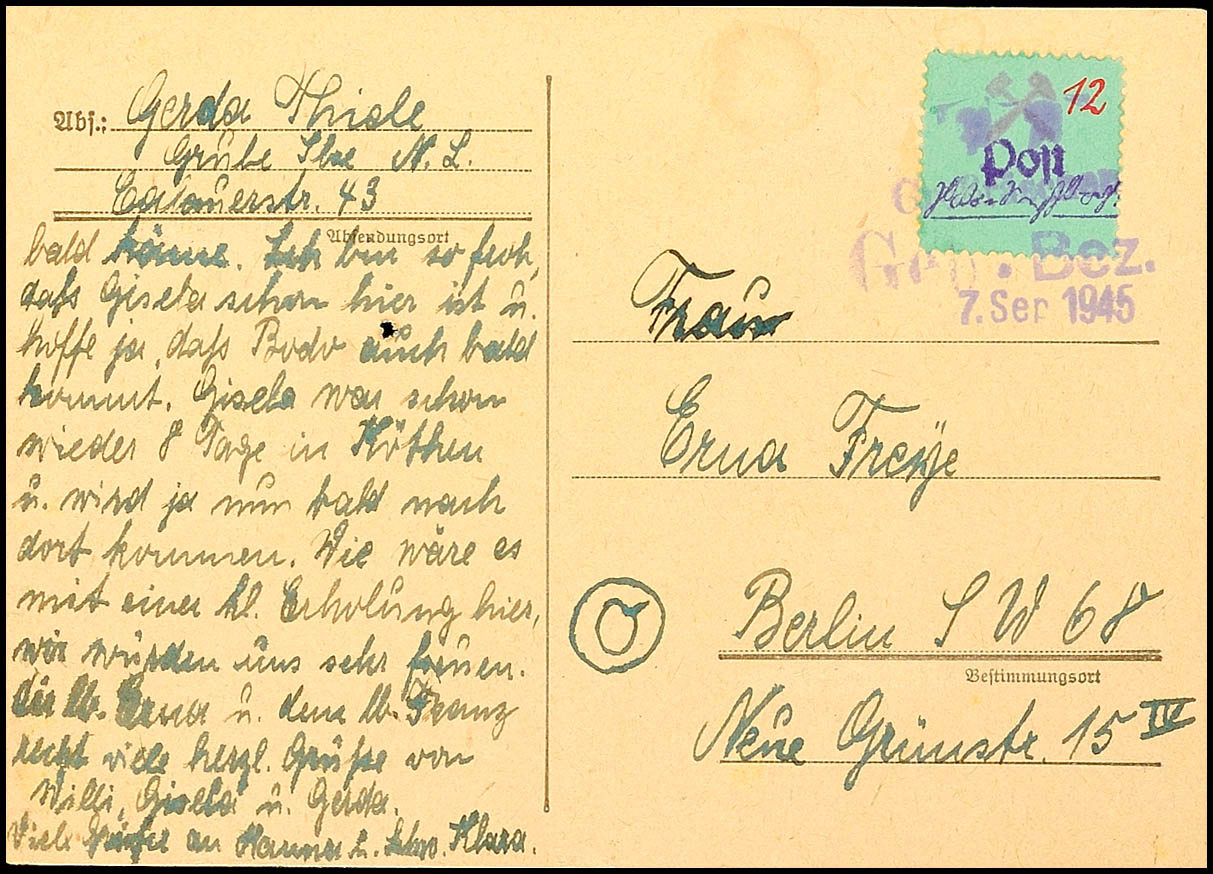 Abs.: Gerda Thiele
Grube Ilse N. L.
Calauerstr. 43
Absendungsort
bald käme. Ich bin so froh,
daß Gisela schon hier ist u.
hoffe ja, daß Bodo auch bald
kommt. Gisela war schon
wieder 8 Tage in Köthen
u. wird ja nun bald nach
dort kommen. Wie wäre es
mit einer kl. Erholung hier,
wir würden uns sehr freuen.
die lb. Erna u. dem lb. Franz
recht viele herzl. Grüße von
Willi, Gisela u. Gerda.
Viele Grüße an Hanna u. Klara.
12
Post
Bez.
7. Sep 1945
Frau
Erna Freye
Berlin SW 68
Bestimmungsort
Neue Grünstr. 15 IV